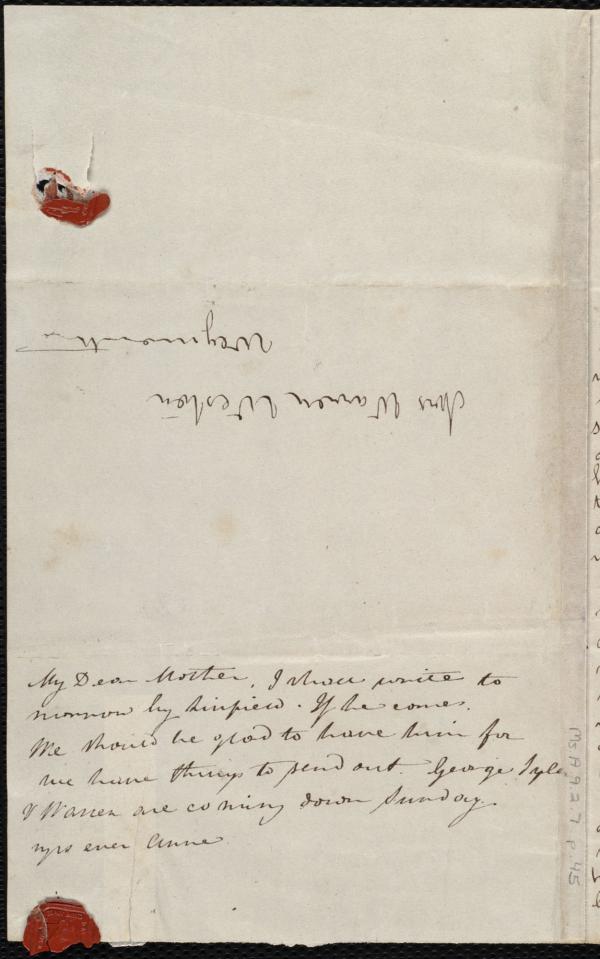 Mrs Warren Weston
Weymouth
My Dear Mother, I shall write to
morrow by Linfield. If he comes.
We should be glad to have him for
we have things to send out. George Tyler
& Warren are coming down Sunday.
yrs ever Anne
Ms.A.9.2.7 p.45